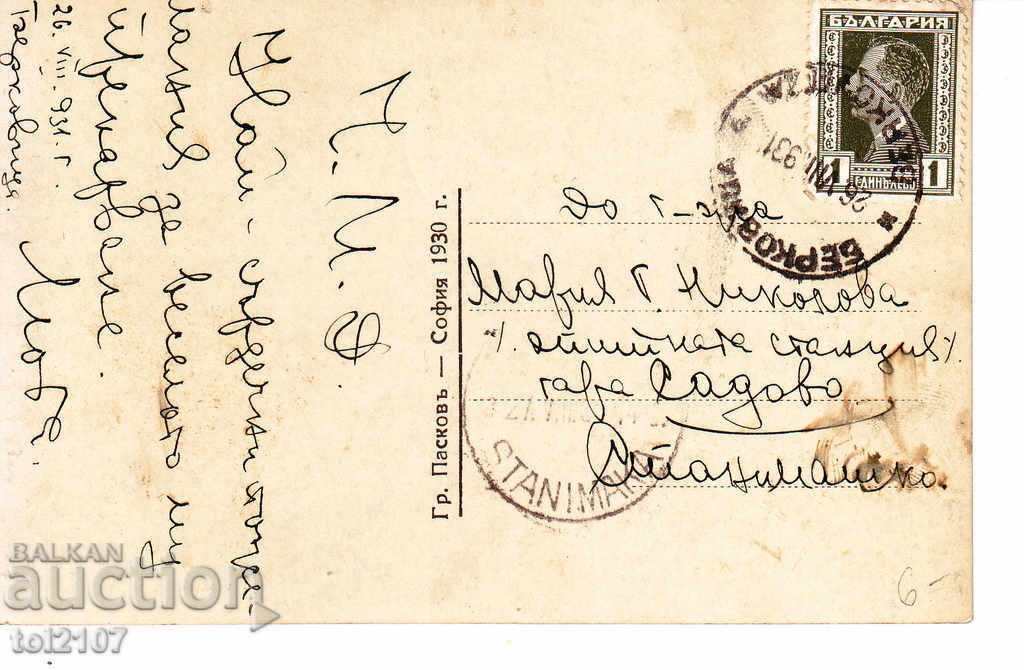 БЪЛГАРИЯ
1 ЕДИНЪ ЛЕВЪ 1
BERKOVITZA
26 VIII 931
БЕРКОВИЦА
До г-ца
Мария Г. Николова
гара Садово
Станимашко.
STANIMAKA
Гр. Пасковъ — София 1930 г.
М. М. Ф.
Най-сърдечни поже-
лания за веселото му
прекарване.
26. VIII. 931. г.
Берковица.
BALKAN
auction
tol2107
6-